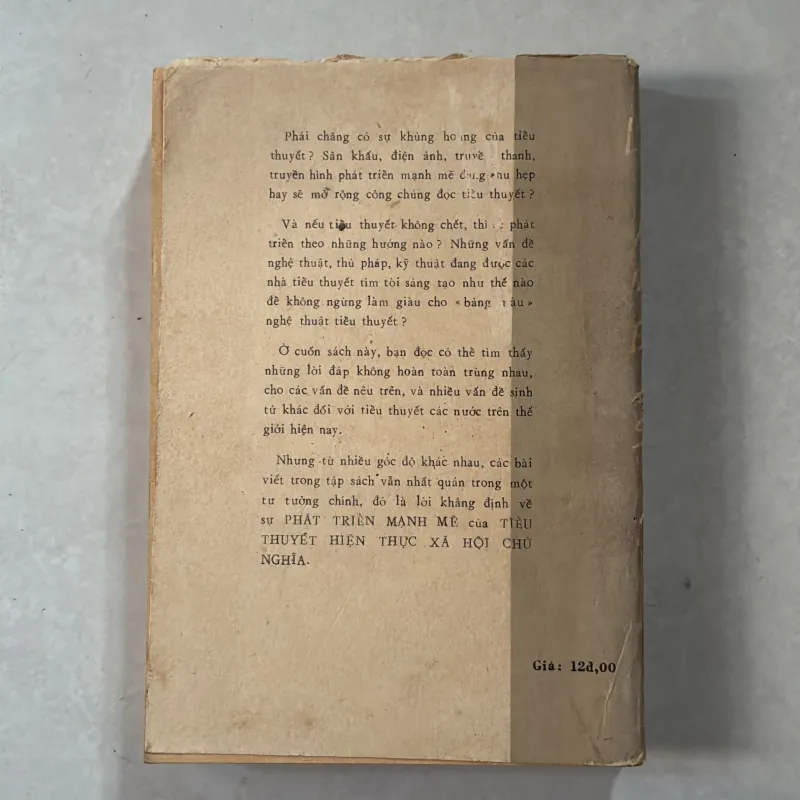 Phải chăng có sự khủng hoảng của tiểu
thuyết? Sân khấu, điện ảnh, truyền thanh,
truyền hình phát triển mạnh mẽ đang thu hẹp
hay sẽ mở rộng công chúng đọc tiểu thuyết?
Và nếu tiểu thuyết không chết, thì phát
triển theo những hướng nào? Những vấn đề
nghệ thuật, thủ pháp, kỹ thuật đang được các
nhà tiểu thuyết tìm tòi sáng tạo như thế nào
để không ngừng làm giàu cho «bảng màu»
nghệ thuật tiểu thuyết?
Ở cuốn sách này, bạn đọc có thể tìm thấy
những lời đáp không hoàn toàn trùng nhau,
cho các vấn đề nêu trên, và nhiều vấn đề sinh
tử khác đối với tiểu thuyết các nước trên thế
giới hiện nay.
Nhưng từ nhiều góc độ khác nhau, các bài
viết trong tập sách vẫn nhất quán trong một
tư tưởng chính, đó là lời khẳng định về
sự PHÁT TRIỂN MẠNH MẼ của TIỂU
THUYẾT HIỆN THỰC XÃ HỘI CHỦ
NGHĨA.
Giá: 12đ,00